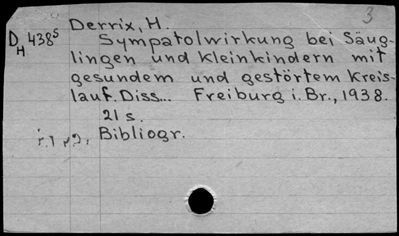 3
Derrix, H.
D 438s Sympatolwirkung bei Säug-
H
lingen und Kleinkindern mit
gesundem und gestörtem Kreis-
lauf. Diss... Freiburg i. Br., 1938.
21 s.
Bibliogr.